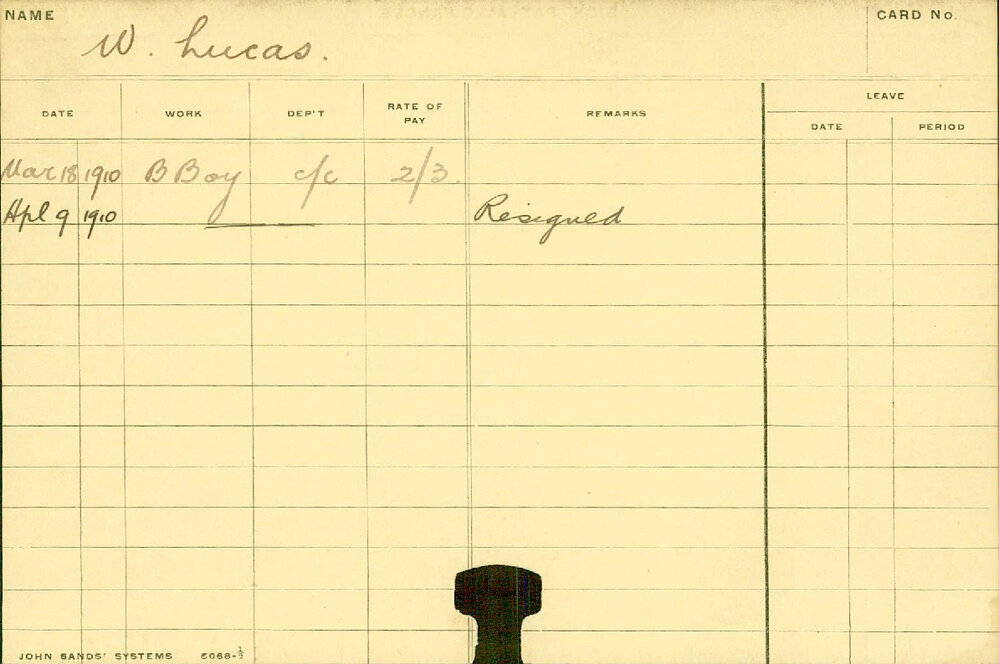 NAME W. Lucas. CARD No.
LEAVE
DATE WORK DEP'T RATE OF PAY REMARKS DATE PERIOD
Mar 18 1910 B Boy c/c 2/3.
Apl 9 1910 Resigned
JOHN SANDS' SYSTEMS 6068-½